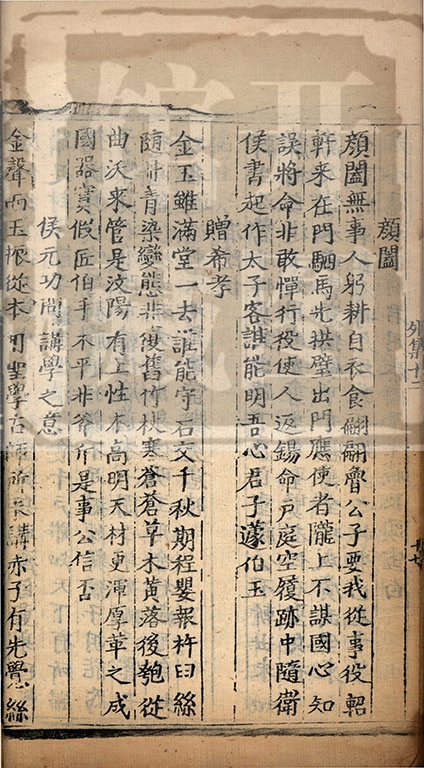 外集十二
十七
顔闔
顔闔無事人躬耕自衣食翩翩魯公子要我從事役軺
軒来在門駟馬先拱璧出門應使者隴上不謀國心知
誤將命非敢憚行役使人返錫命戶庭空履跡中隨衛
侯書起作太子客誰能明吾心君子蘧伯玉
贈希孝
金玉雖滿堂一去誰能守石文千秋期程嬰報杵臼絲
隨丹青染變態非復舊竹梗寒蒼蒼草木黃落後匏從
曲沃来管是汶陽有上性本高明天材更渾厚革之成
國器實假匠伯手不平非斧斤是事公信否
侯元功問講學之意
金聲而玉振從本用聖學古師所不講赤子有先覺絲